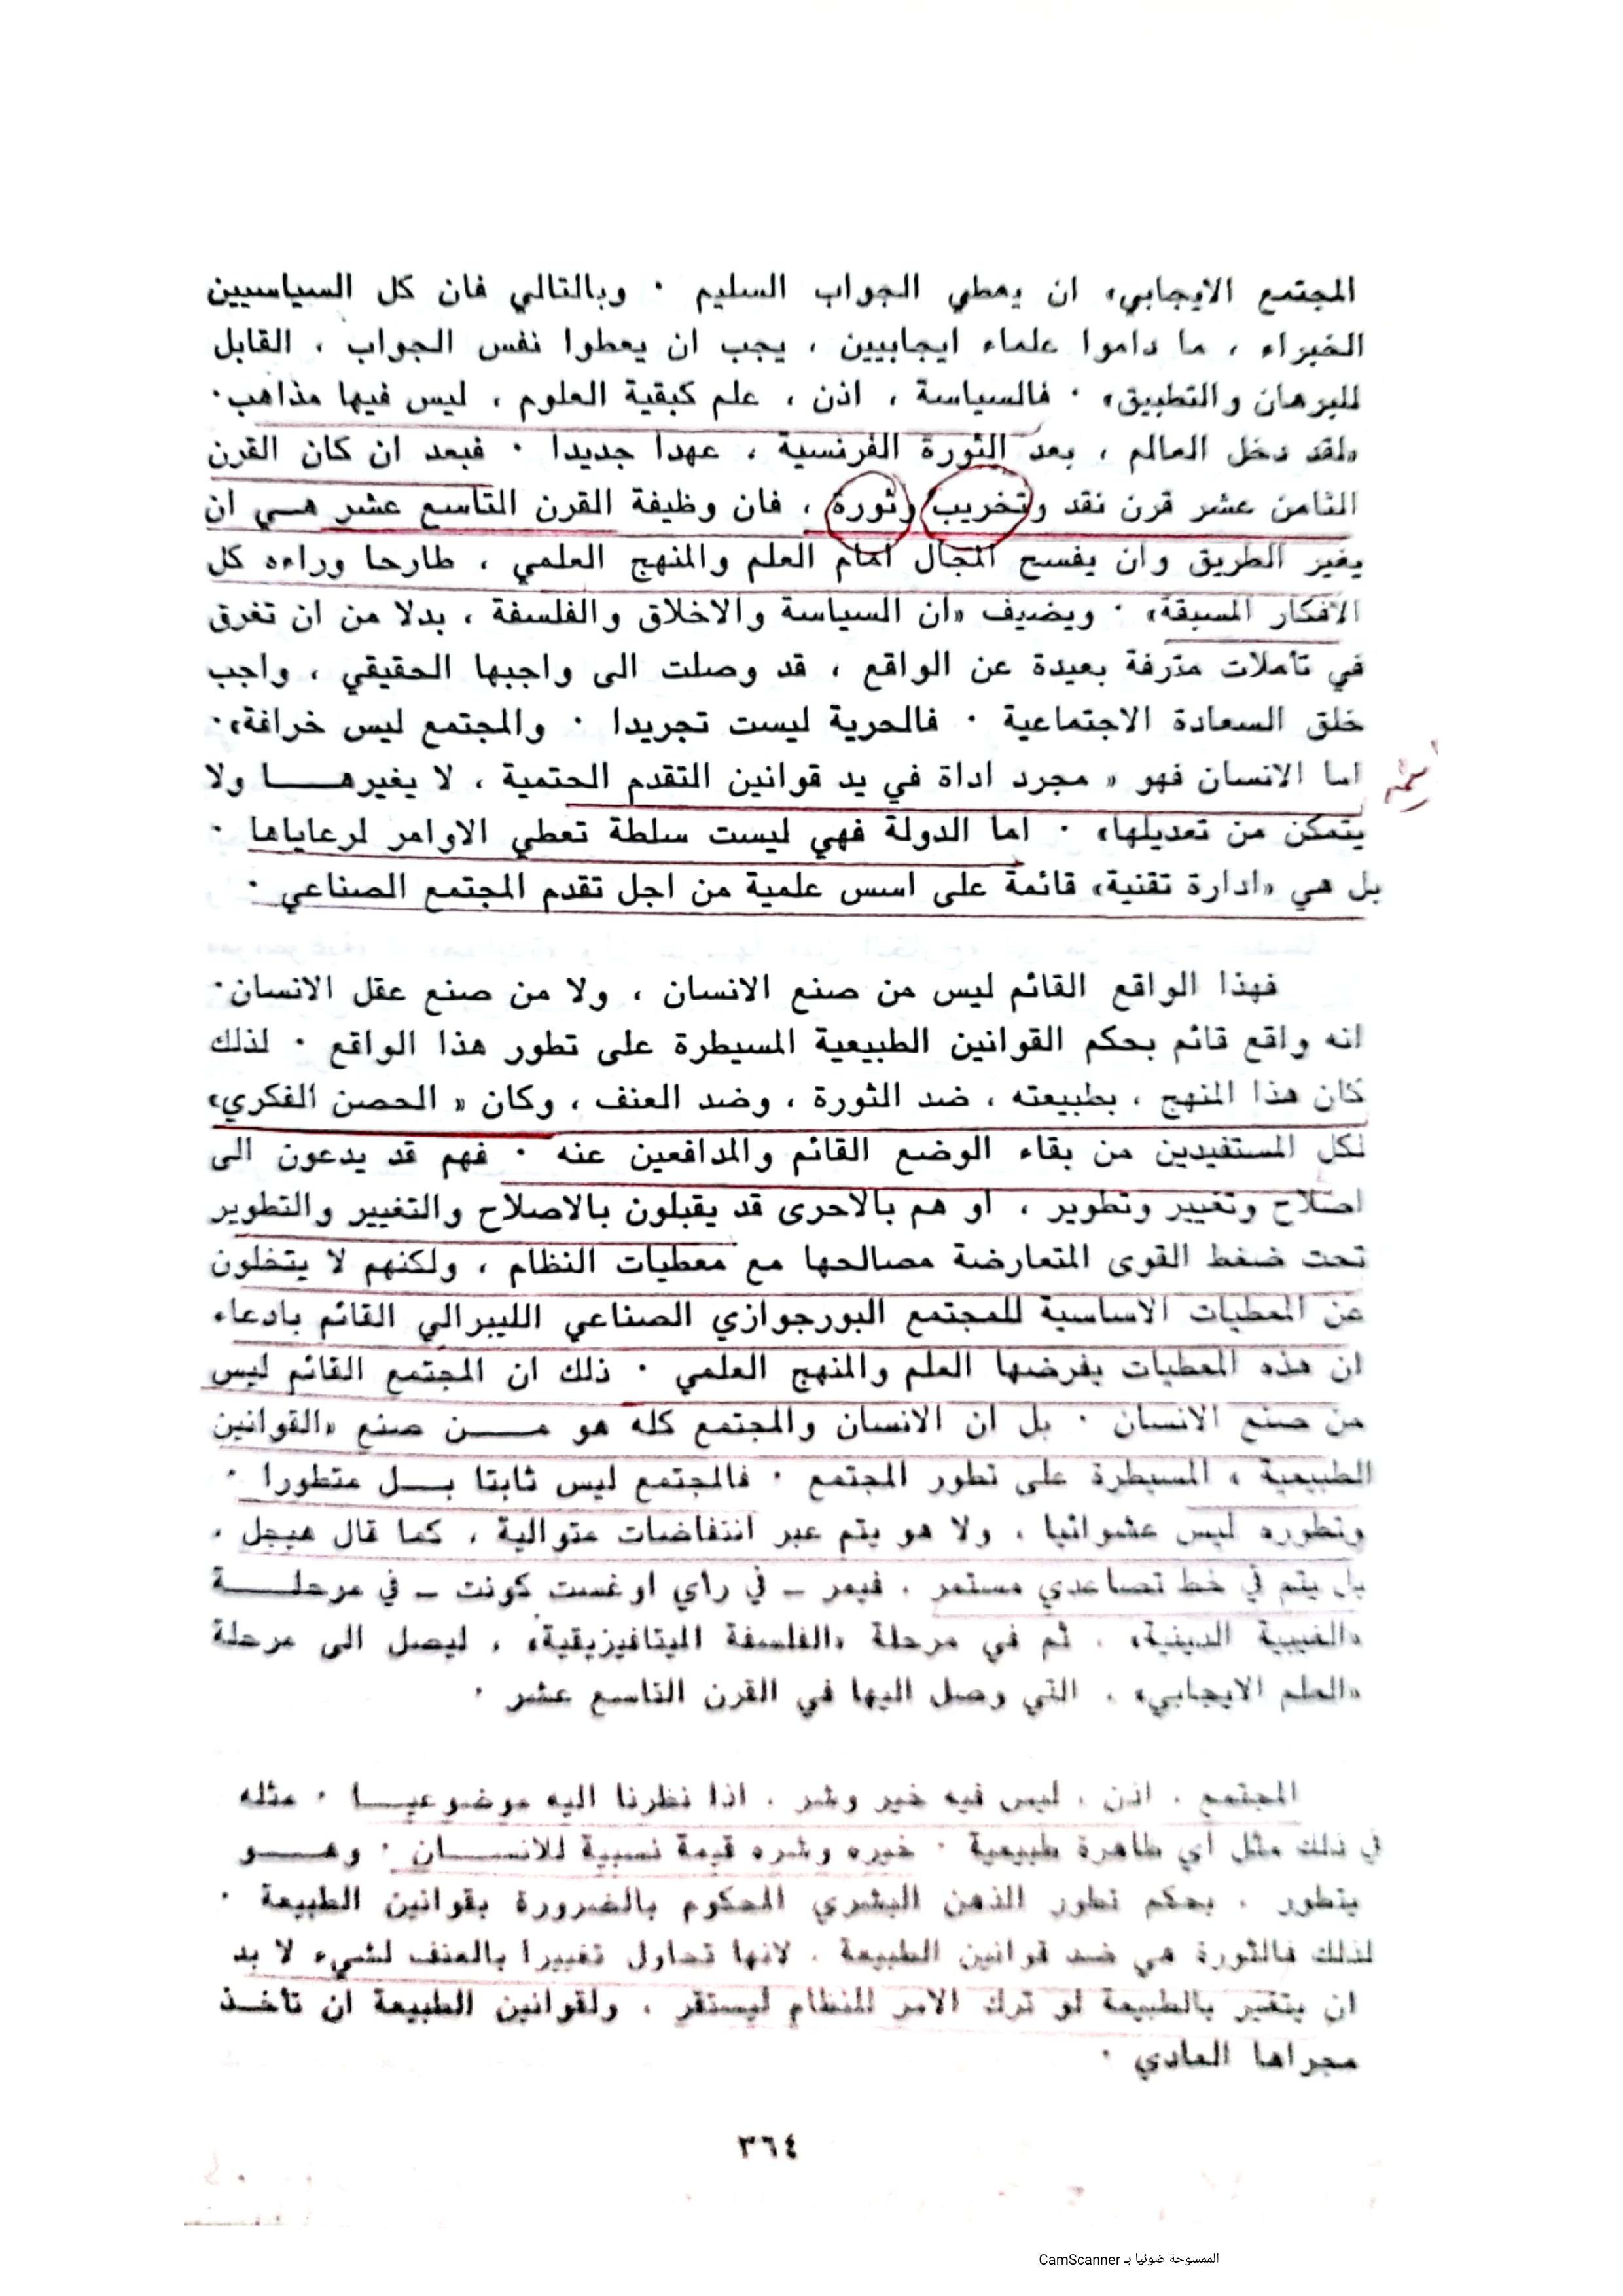 المجتمع الايجابي، ان يعطي الجواب السليم ٠ وبالتالي فان كل السياسيين
الخبراء ، ما داموا علماء ايجابيين ، يجب ان يعطوا نفس الجواب ، القابل
للبرهان والتطبيق» ٠ فالسياسة ، اذن ، علم كبقية العلوم ، ليس فيها مذاهب٠
«لقد دخل العالم ، بعد الثورة الفرنسية ، عهدا جديدا ٠ فبعد ان كان القرن
الثامن عشر قرن نقد وتخريب وثورة ، فان وظيفة القرن التاسع عشر هـي ان
يغير الطريق وان يفسح المجال امام العلم والمنهج العلمي ، طارحا وراءه كل
الافكار المسبقة» ٠ ويضيف «ان السياسة والاخلاق والفلسفة ، بدلا من ان تغرق
في تأملات مترفة بعيدة عن الواقع ، قد وصلت الى واجبها الحقيقي ، واجب
خلق السعادة الاجتماعية ٠ فالحرية ليست تجريدا ٠ والمجتمع ليس خرافة»٠
اما الانسان فهو « مجرد اداة في يد قوانين التقدم الحتمية ، لا يغيرهـا ولا
يتمكن من تعديلها» ٠ اما الدولة فهي ليست سلطة تعطي الاوامر لرعاياها ٠
بل هي «ادارة تقنية» قائمة على اسس علمية من اجل تقدم المجتمع الصناعي ٠
فهذا الواقع القائم ليس من صنع الانسان ، ولا من صنع عقل الانسان٠
انه واقع قائم بحكم القوانين الطبيعية المسيطرة على تطور هذا الواقع ٠ لذلك
كان هذا المنهج ، بطبيعته ، ضد الثورة ، وضد العنف ، وكان « الحصن الفكري»
لكل المستفيدين من بقاء الوضع القائم والمدافعين عنه ٠ فهم قد يدعون الى
اصلاح وتغيير وتطوير ، او هم بالاحرى قد يقبلون بالاصلاح والتغيير والتطوير
تحت ضغط القوى المتعارضة مصالحها مع معطيات النظام ، ولكنهم لا يتخلون
عن المعطيات الاساسية للمجتمع البورجوازي الصناعي الليبرالي القائم بادعاء
ان هذه المعطيات يفرضها العلم والمنهج العلمي ٠ ذلك ان المجتمع القائم ليس
من صنع الانسان ٠ بل ان الانسان والمجتمع كله هو مـن صنع «القوانين
الطبيعية » المسيطرة على تطور المجتمع ٠ فالمجتمع ليس ثابتا بـل متطورا ٠
وتطوره ليس عشوائيا ، ولا هو يتم عبر انتفاضات متوالية ، كما قال هيجل ،
بل يتم في خط تصاعدي مستمر ، فيمر ـ في رأي اوغست كونت ـ في مرحلـة
«الغيبية الدينية» ، ثم في مرحلة «الفلسفة الميتافيزيقية» ، ليصل الى مرحلة
«العلم الايجابي» ، التي وصل اليها في القرن التاسع عشر ٠
المجتمع ، اذن ، ليس فيه خير وشر ، اذا نظرنا اليه موضوعيـا ٠ مثله
في ذلك مثل اي ظاهرة طبيعية ٠ خيره وشره قيمة نسبية للانسـان ٠ وهـو
يتطور ، بحكم تطور الذهن البشري المحكوم بالضرورة بقوانين الطبيعة ٠
لذلك فالثورة هي ضد قوانين الطبيعة ، لانها تحاول تغييرا بالعنف لشيء لا بد
ان يتغير بالطبيعة لو ترك الامر للنظام ليستقر ، ولقوانين الطبيعة ان تأخـذ
مجراها العادي ٠
٣٦٤
الممسوحة ضوئيا بـ CamScanner